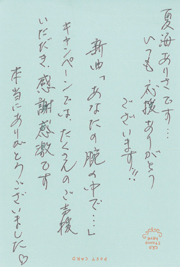 夏海ありさです…
いつも応援ありがとう
ございます!!
新曲「あなたの腕の中で…」
キャンペーンでは、たくさんのご声援
いただき、感謝感激です
本当にありがとうございました♡